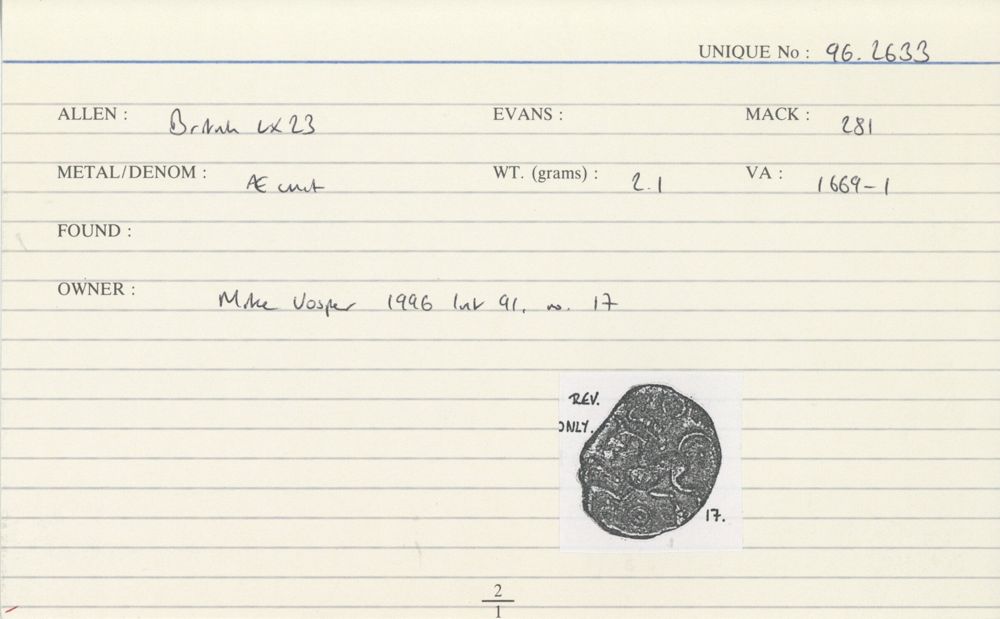 UNIQUE No : 96.2633
ALLEN : British LX23 EVANS : MACK : 281
METAL/DENOM : Æ unit WT. (grams) : 2.1 VA : 1669-1
FOUND :
OWNER : Mike Vosper 1996 List 91, no. 17
REV.
ONLY.
17.
2
1